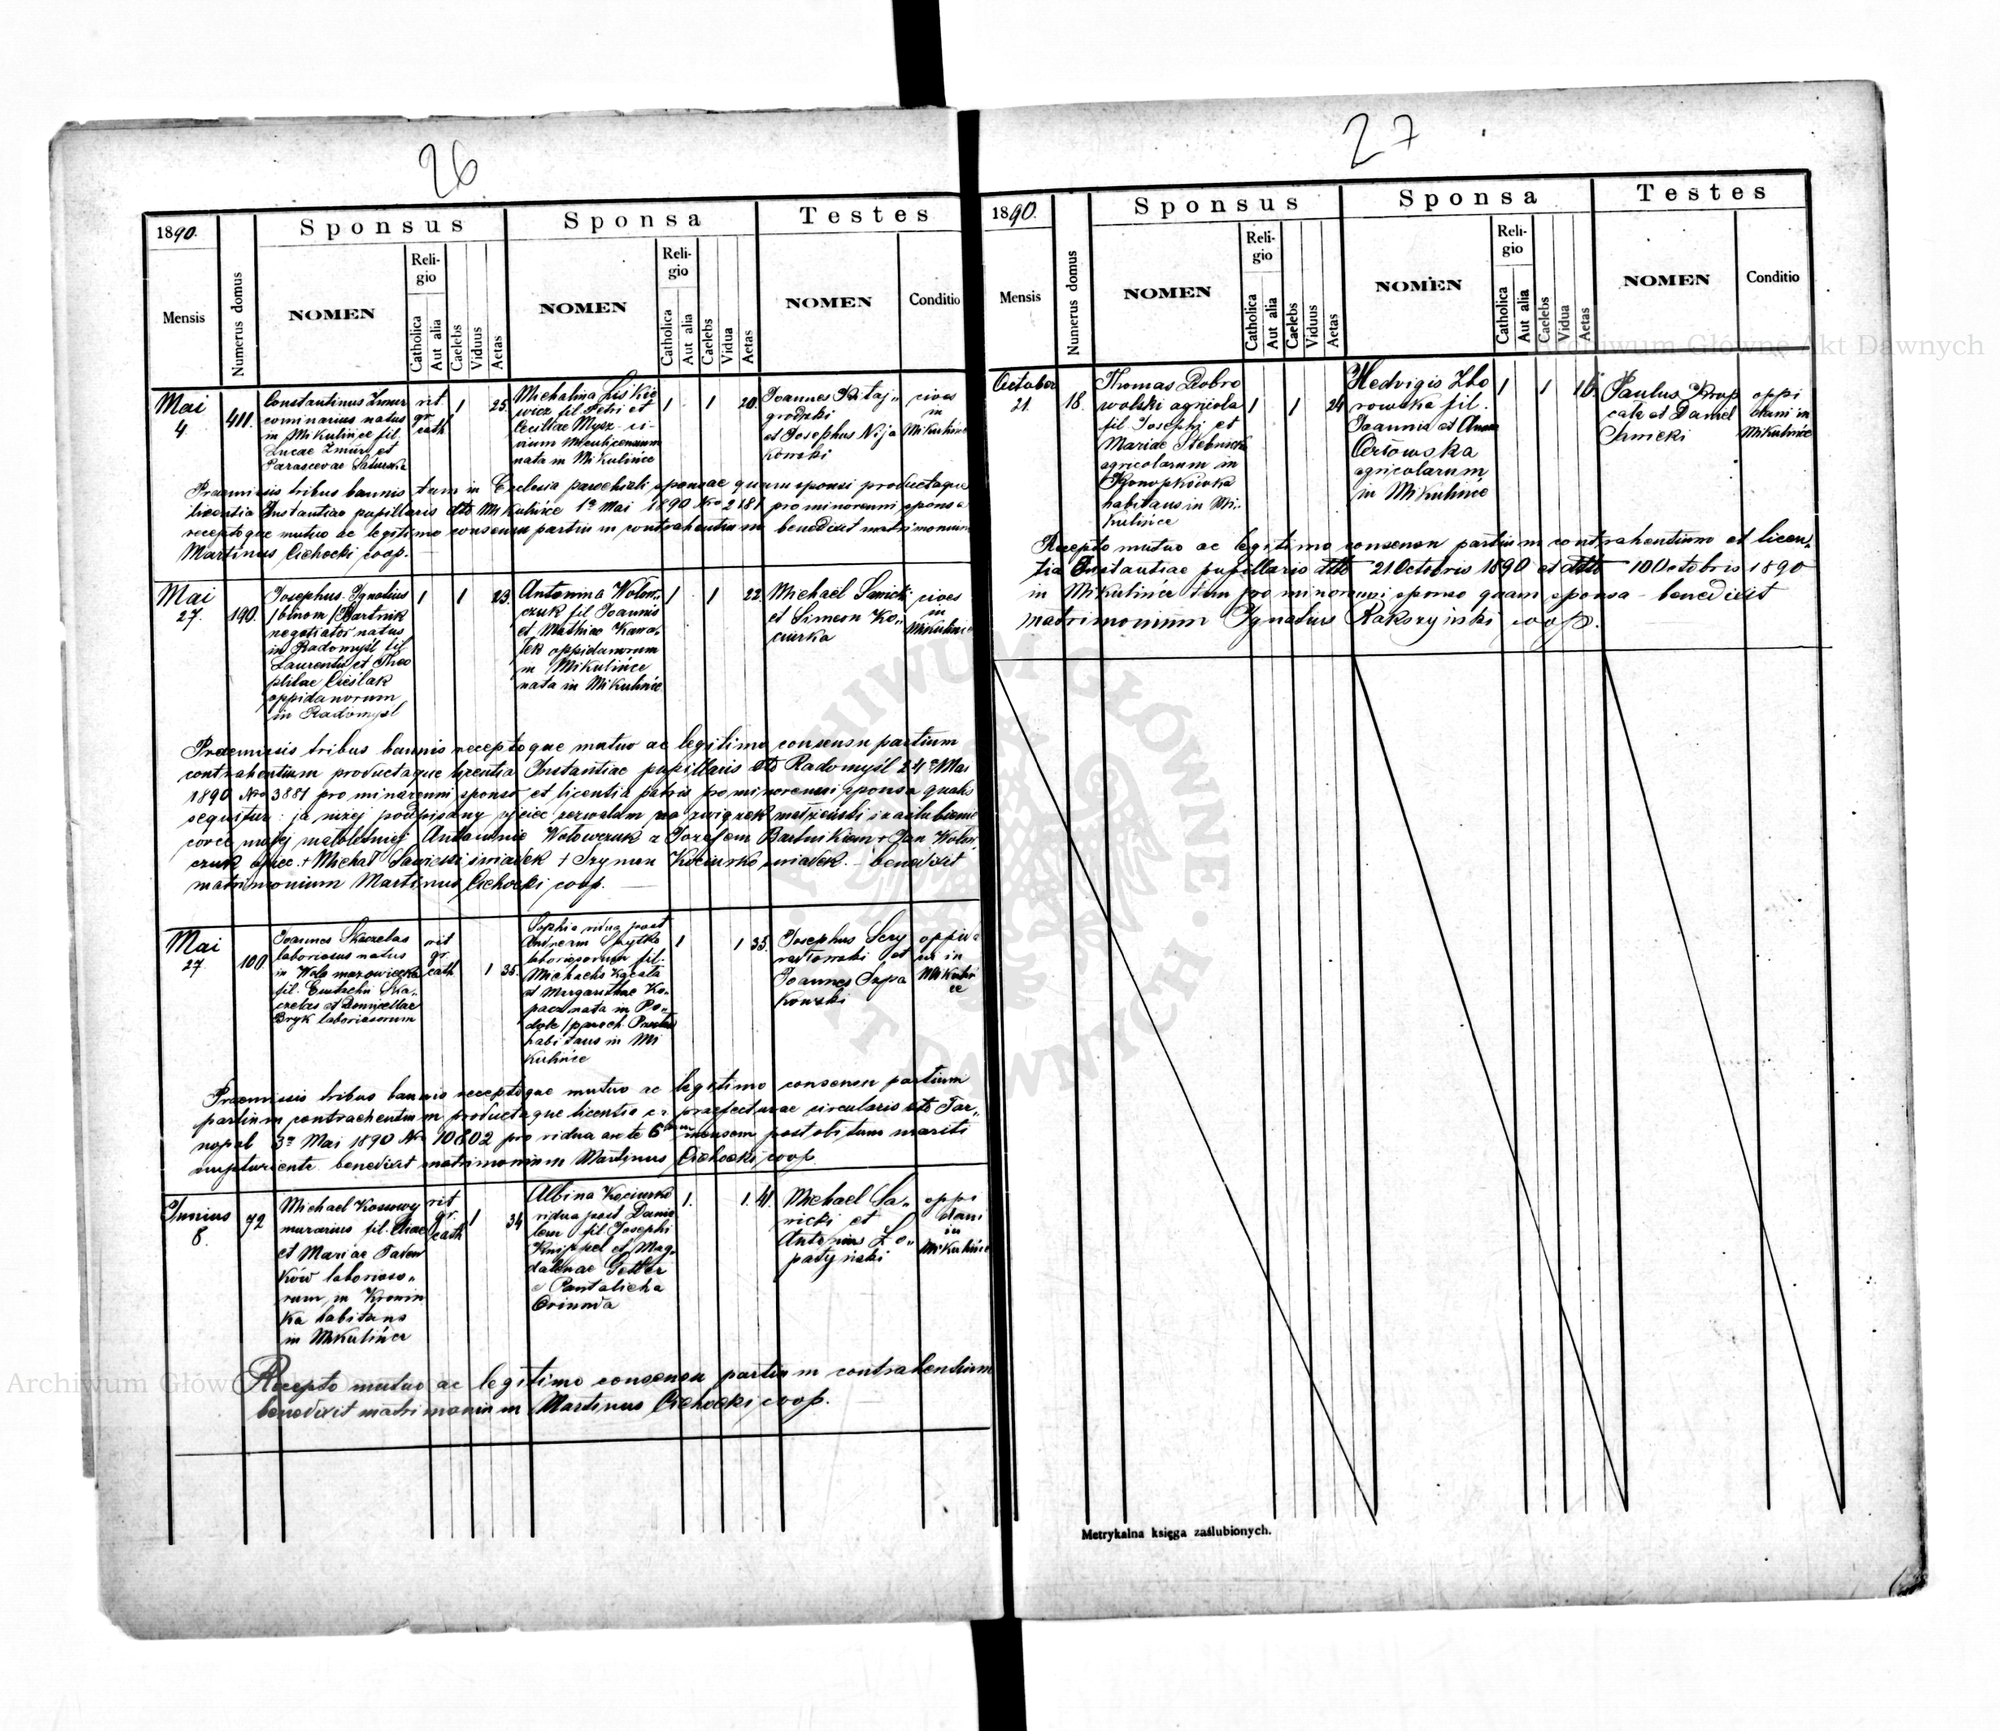 26
1890.
Mensis
Numerus domus
Sponsus
NOMEN
Religio
Catholica
Aut alia
Caelebs
Viduus
Aetas
Sponsa
NOMEN
Religio
Catholica
Aut alia
Caelebs
Vidua
Aetas
Testes
NOMEN
Conditio
Mai
4
411.
Constantinus Zmur
cominarius natus
in Mikulińce fil.
Lucae Zmur et
Parascevae
rit
gr.
cath
1
25.
Michalina Liskie
wicz fil Petri et
Ceciliae Mysz ci-
vium Miculicensium
nata in Mikulińce
1
1
20.
Joannes Krtaj-
grodzki
et Josephus Nija
kowski
cives
in
Mikulińce
Praemissis tribus bannis tum in Ecclesia parochiali sponsae quam sponsi productaque
licentia Instantiae pupillaris dto Mikulińce 1ª Mai 1890 Nro 2181 pro minorenni sponsa
receptoque mutuo ac legitimo consensu partium contrahentium benedixit matrimonium
Martinus Cichocki coop.
Mai
27.
190.
Josephus Ignatius
/binom/ Bartnik
negotiator natus
in Radomyśl fil
Laurentii et Theo
philae Cieślak
oppidanorum
in Radomyśl
1
1
23.
Antonina Wolow-
czuk fil Joannis
et Mathiae Kawa-
łek oppidanorum
in Mikulińce
nata in Mikulińce
1
1
22.
Michael Sanicki
et Simeon Ko-
ciurka
cives
in
Mikulińce
Praemissis tribus bannis receptoque mutuo ac legitimo consensu partium
contrahentium productaque licentia Instantiae pupillaris dto Radomyśl 24ª Mai
1890 Nro 3881 pro minorenni sponso et licentia patris pro minorenni sponsa qualis
sequitur: ja niżej podpisany ojciec zezwalam na związek małżeński i zaślubienie
córce mojej małoletniej Antoninie Wolowczuk z Józefem Bartnikiem + Jan Wolow
czuk ojciec + Michał Sanicki świadek + Szymon Kociurko świadek. - benedixit
matrimonium Martinus Cichocki coop.
Mai
27.
100.
Joannes Skaczelas
laboriosus natus
in Wola mazowiecka
fil. Eustachii Ska-
czelas et Daniellae
Bryk laboriosorum
rit
gr.
cath
1
35.
Sophia vidua post
Andream Skytka
laboriosorum fil.
Michaelis Kącała
et Margarithae Ko-
pacz nata in Po-
dole /paroch.
habitans in Mi
kulińce
1
1
35.
Josephus Scry
et
Joannes Szpa
kowski
oppida
ni in
Mikuliń
ce
Praemissis tribus bannis receptoque mutuo ac legitimo consensu partium
partium contrachentium productaque licentia cr praefecturae circularis dto Tar-
nopol 3ª Mai 1890 Nr 10802 pro vidua ante 6tum mensem post obitum mariti
nupturiente benedixit matrimonium Martinus Cichocki coop.
Junius
8.
92
Michael Kossowy
murarius fil. Eliae
et Mariae Padew
ków laborioso-
rum in Kronin
ka habitans
in Mikulińce
rit
gr.
cath
1
34
Albina Kociurko
vidua post Danie
lem fil Josephi
Knippel et Mag-
dalenae Tetler
e Pantalicha
oriunda
1.
1.
41.
Michael Sa-
nicki et
Antonius Lo-
patyński
oppi
dani
in
Mikulińce
Recepto mutuo ac legitimo consensu partium contrahentium
benedixit matrimonium Martinus Cichocki coop.
27
1890.
Mensis
Numerus domus
Sponsus
NOMEN
Religio
Catholica
Aut alia
Caelebs
Viduus
Aetas
Sponsa
NOMEN
Religio
Catholica
Aut alia
Caelebs
Vidua
Aetas
Testes
NOMEN
Conditio
October
21.
18.
Thomas Dobro
wolski agricola
fil Josephi et
Mariae Stebnicka
agricolarum in
Konopkówka
habitans in Mi-
kulińce
1
1
24
Hedvigis Zbo
rowska fil.
Joannis et Anna
Ortowska
agricolarum
in Mikulińce
1
1
16.
Paulus Krop
cale et Daniel
Sanicki
oppi
dani in
Mikulińce
Recepto mutuo ac legitimo consensu partium contrahentium et licen-
tia Instantiae pupillaris dto 21 Octobris 1890 et dto 10 Octobris 1890
in Mikulińce tum pro minorenni sponso quam sponsa - benedixit
matrimonium Ignatius Rakszyński coop.
Metrykalna księga zaślubionych.
Archiwum Główne Akt Dawnych
ARCHIWUM GŁÓWNE AKT DAWNYCH